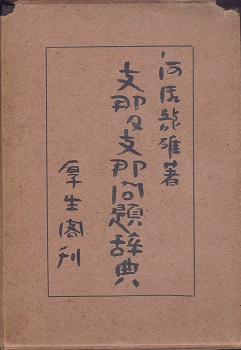 河 龍雄著
支那及支那問題辞典
厚生閣刊